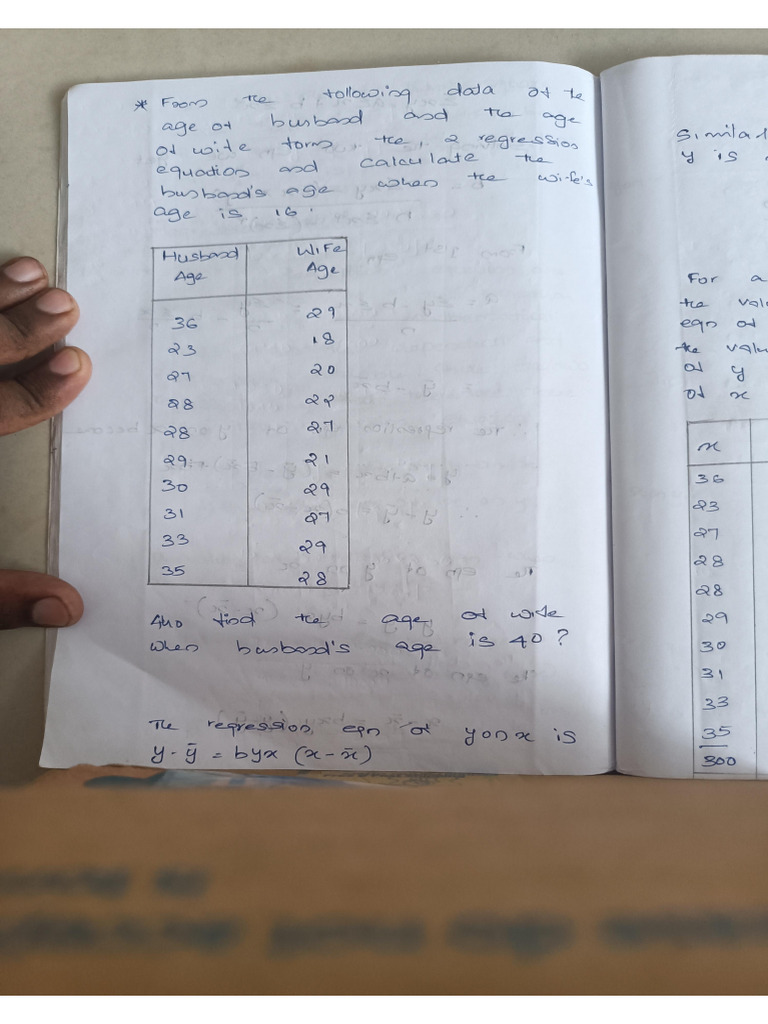 * From the following data of the
age of husband and the age
of wife form, the, 2 regression
equation and calculate the
husband's age when the wife's
age is 16.
Husband Age
Wife Age
36 29
23 18
27 20
28 22
28 27
29 21
30 29
31 27
33 29
35 28
Also find the age of wife
when husband's age is 40?
The regression eqn of y on x is
y - ȳ = byx (x - x̄)
y is
For a
the
eqn of
the
of y
of x
x
36
23
27
28
28
29
30
31
33
35
300